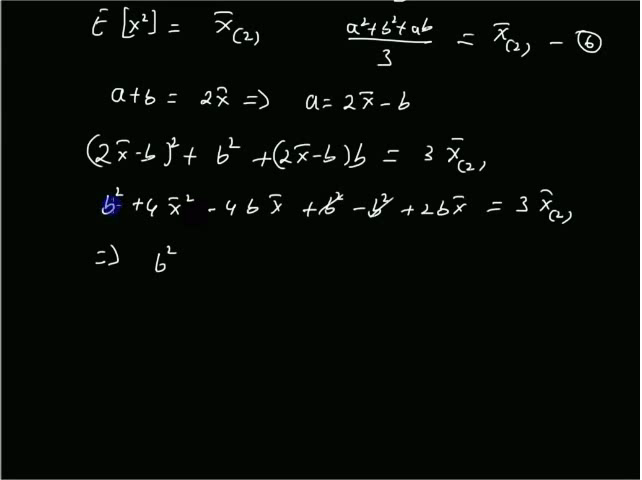 E [x²] = x̄₍₂₎    (a²+b²+ab)/3 = x̄₍₂₎, – ⑥
a+b = 2x̄ => a = 2x̄ – b
(2x̄-b)² + b² + (2x̄-b)b = 3 x̄₍₂₎,
b² + 4x̄² - 4bx̄ + b² - b² + 2bx̄ = 3 x̄₍₂₎,
=> b²